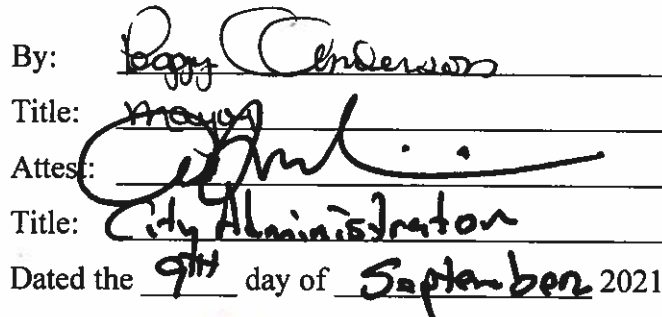 By: Peggy C Anderson
Title: Mayor
Attest:
Title: City Administrator
Dated the 9TH day of September 2021